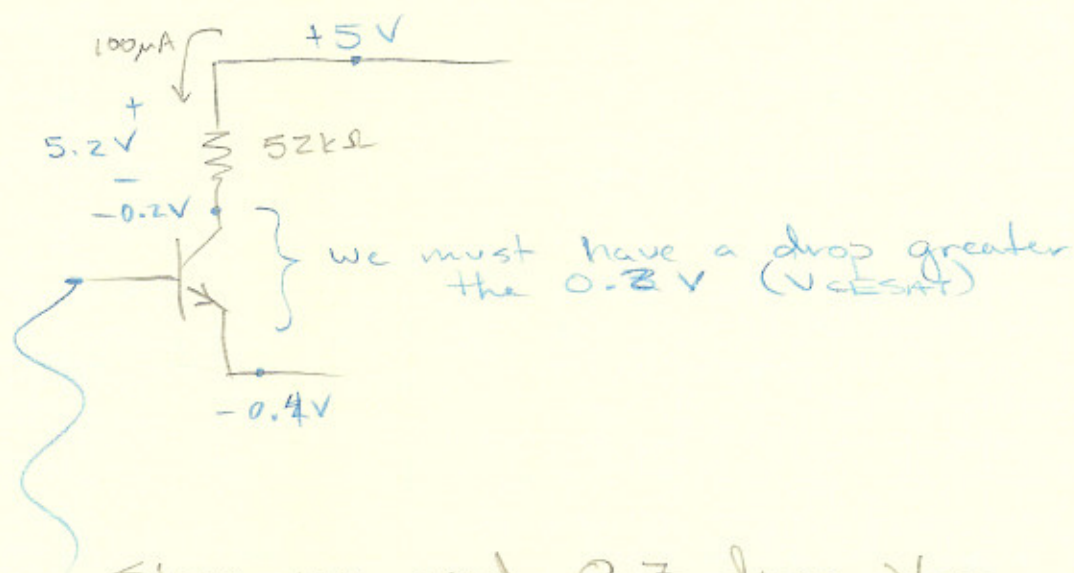 100μA
+5V
+
5.2V
52kΩ
-
-0.2V
we must have a drop greater
the 0.2 V (VCESAT)
-0.4V